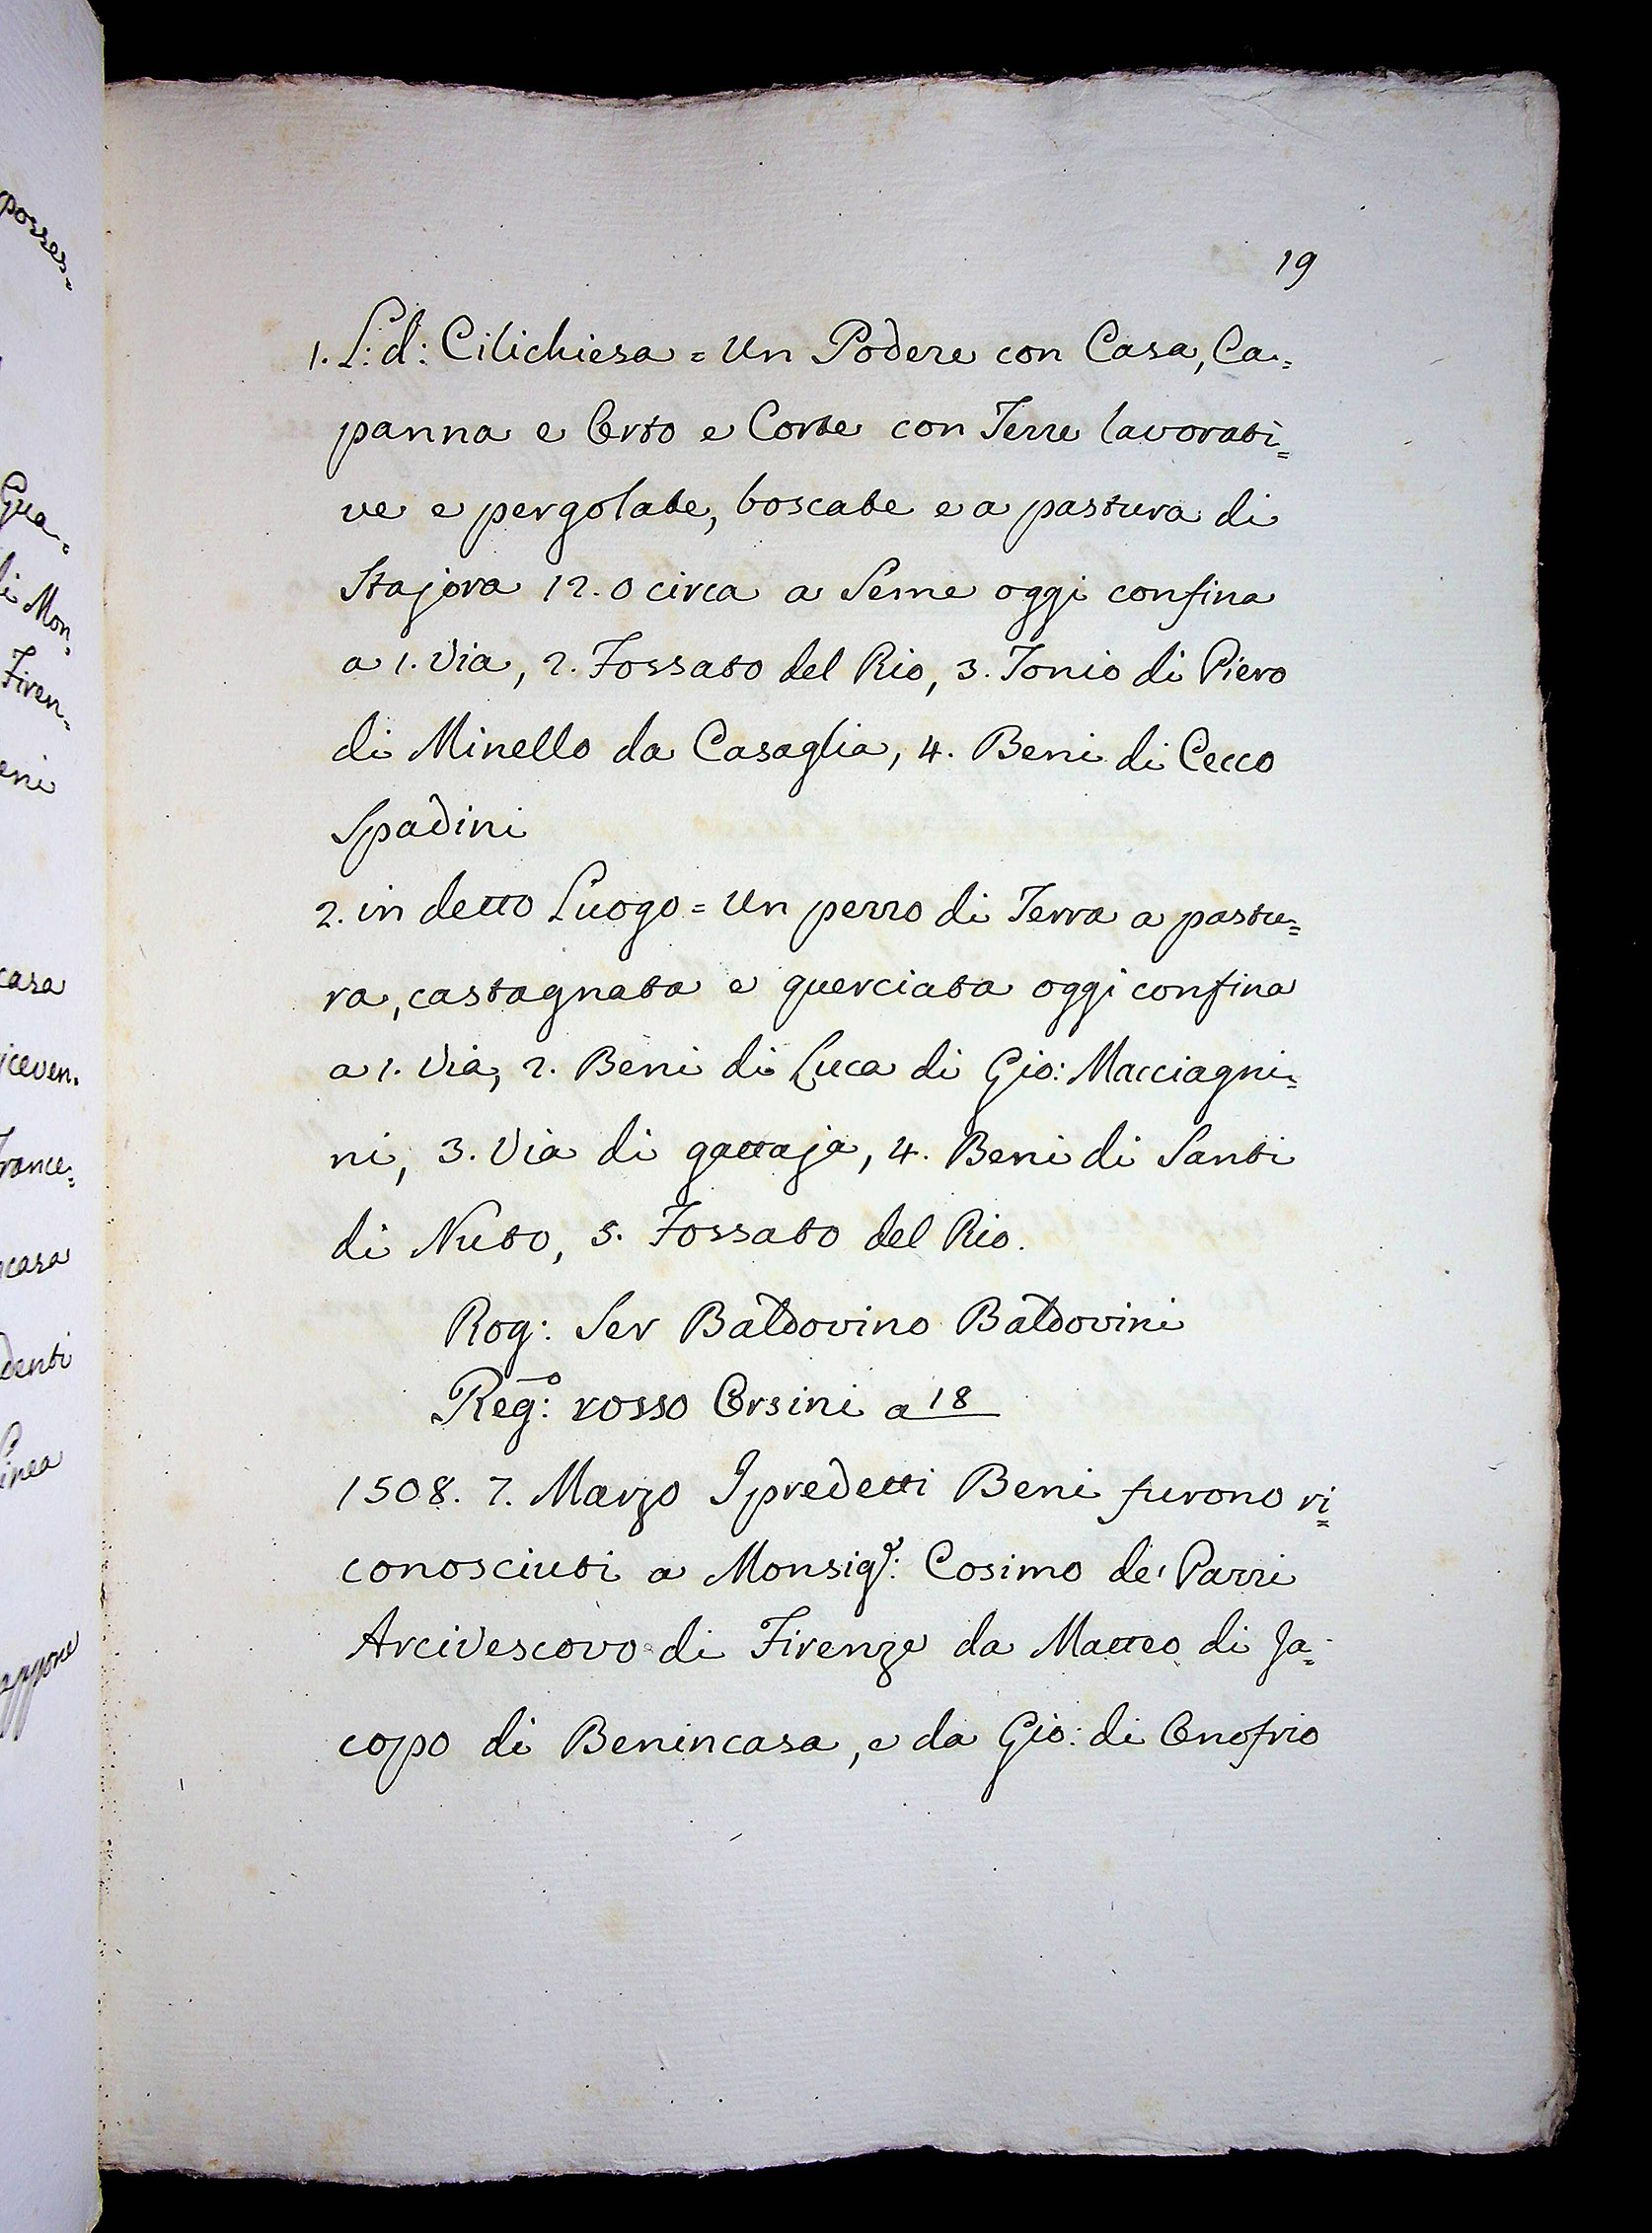 19
1. L: d: Cilichiesa = Un Podere con Casa, Ca=
panna e Orto e Corte con Terre lavorati=
ve e pergolate, boscate e a pastura di
Stajora 12.0 circa a Seme oggi confina
a 1. Via, 2. Fossato del Rio, 3. Tonio di Piero
di Minello da Casaglia, 4. Beni di Cecco
Spadini
2. in detto Luogo = Un pezzo di Terra a pastu=
ra, castagnata e querciata oggi confina
a 1. Via, 2. Beni di Luca di Gio: Macciagni=
ni, 3. Via di gattaja, 4. Beni di Santi
di Nuto, 5. Fossato del Rio.
Rog: Ser Baldovino Baldovini
Reg:º rosso Orsini a 18
1508. 7. Marzo I predetti Beni furono ri=
conosciuti a Monsigr: Cosimo de' Pazzi
Arcivescovo di Firenze da Matteo di Ja=
copo di Benincasa, e da Gio: di Onofrio
posses=
Gua=
di Mon
Firen=
eni
casa
iceven.
rance=
casa
denti
inea
appone